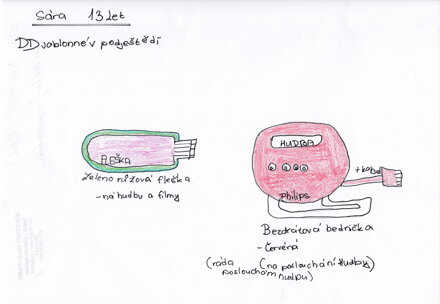 Sára 13 let
DD Jablonné v podještědí
FLEŠKA
zeleno růžová fleška
- na hudbu a filmy
HUDBA
+ kabel
Philips
Bezdrátová bednička
- červená
(na poslouchání hudby)
(ráda poslouchám hudbu)